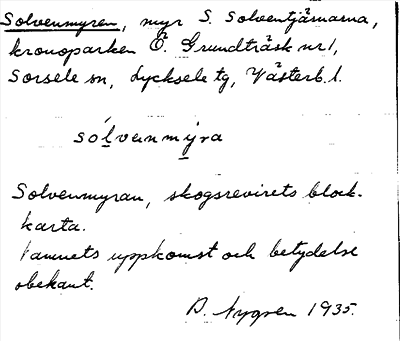 Solvenmyren, myr S. Solventjärnarna,
kronoparken Ö. Grundträsk nr 1,
Sorsele sn, Lycksele tg, Västerb. l.
sólvenmýra
Solvenmyran, skogsrevirets block-
karta.
Namnets uppkomst och betydelse
obekant.
D. Nygren 1935.